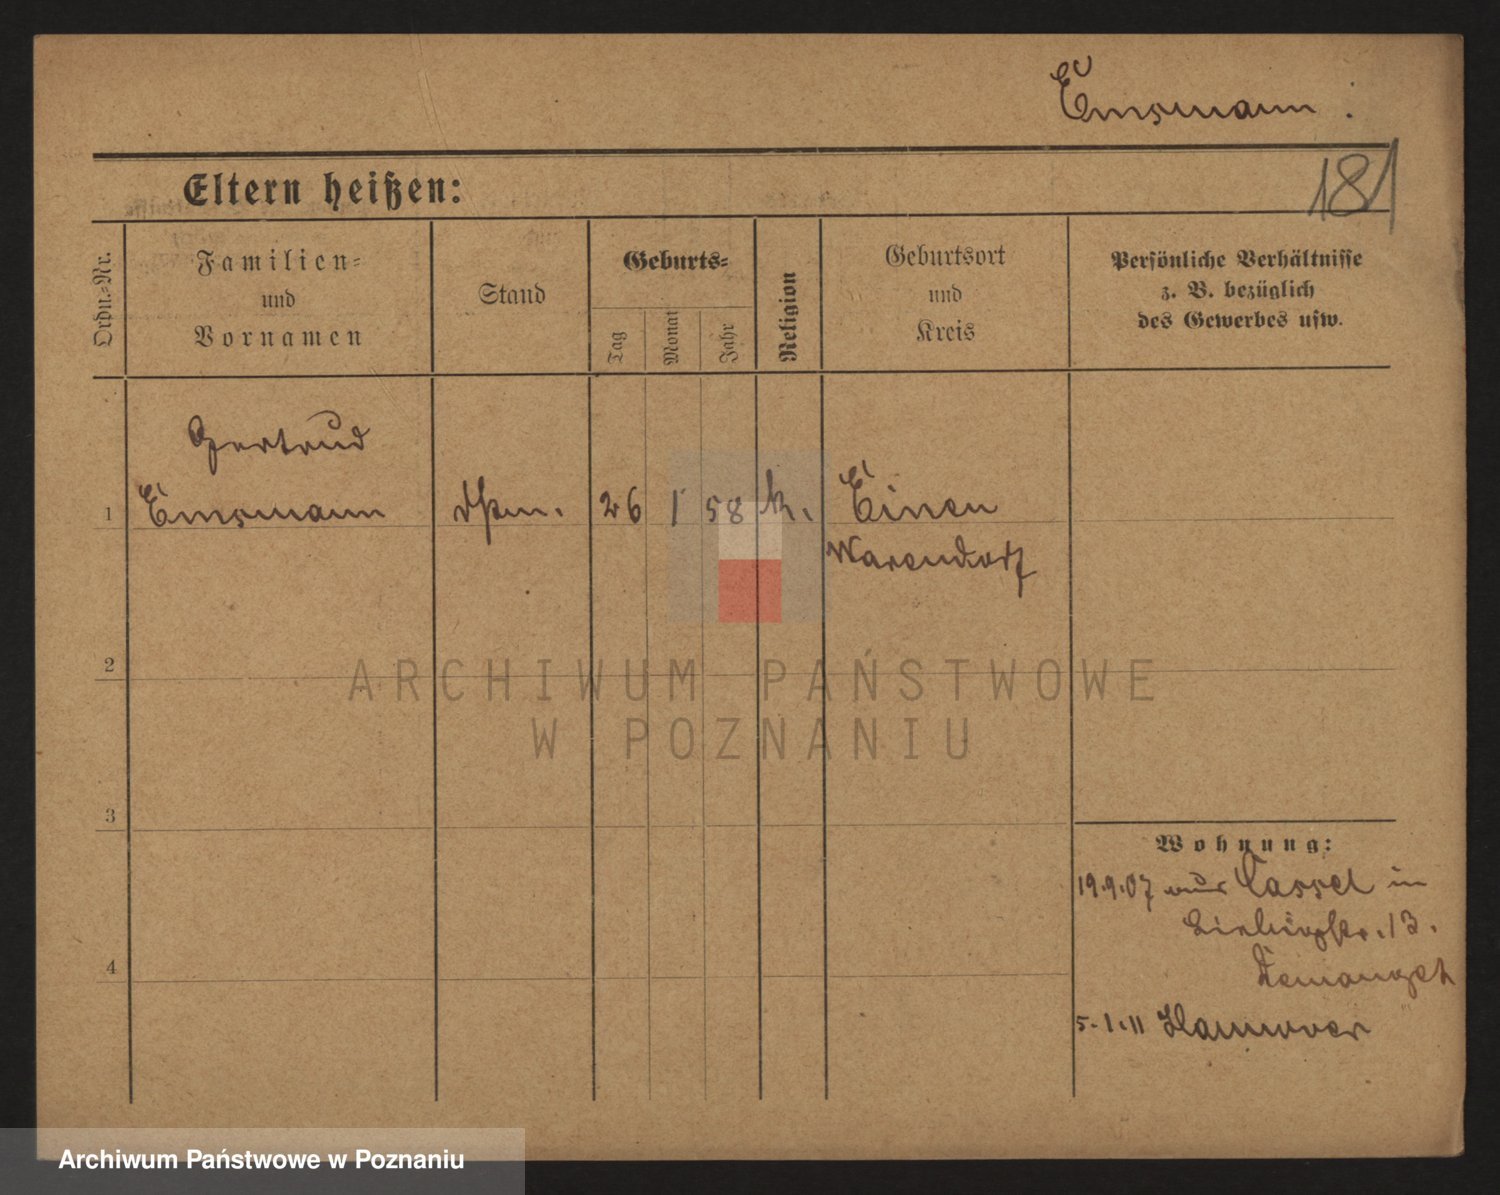 Emsmann.
181
Eltern heißen:
Ordn.-Nr.
Familien-
und
Vornamen
Stand
Geburts-
Tag
Monat
Jahr
Religion
Geburtsort
und
Kreis
Persönliche Verhältnisse
z. B. bezüglich
des Gewerbes usw.
Gertrud
1 Emsmann 26 1 58 k. Einen
Warendorf
2
ARCHIWUM PAŃSTWOWE
W POZNANIU
3
Wohnung:
19.9.07 Cassel in
13.
4
5.1.11 Hannover
Archiwum Państwowe w Poznaniu